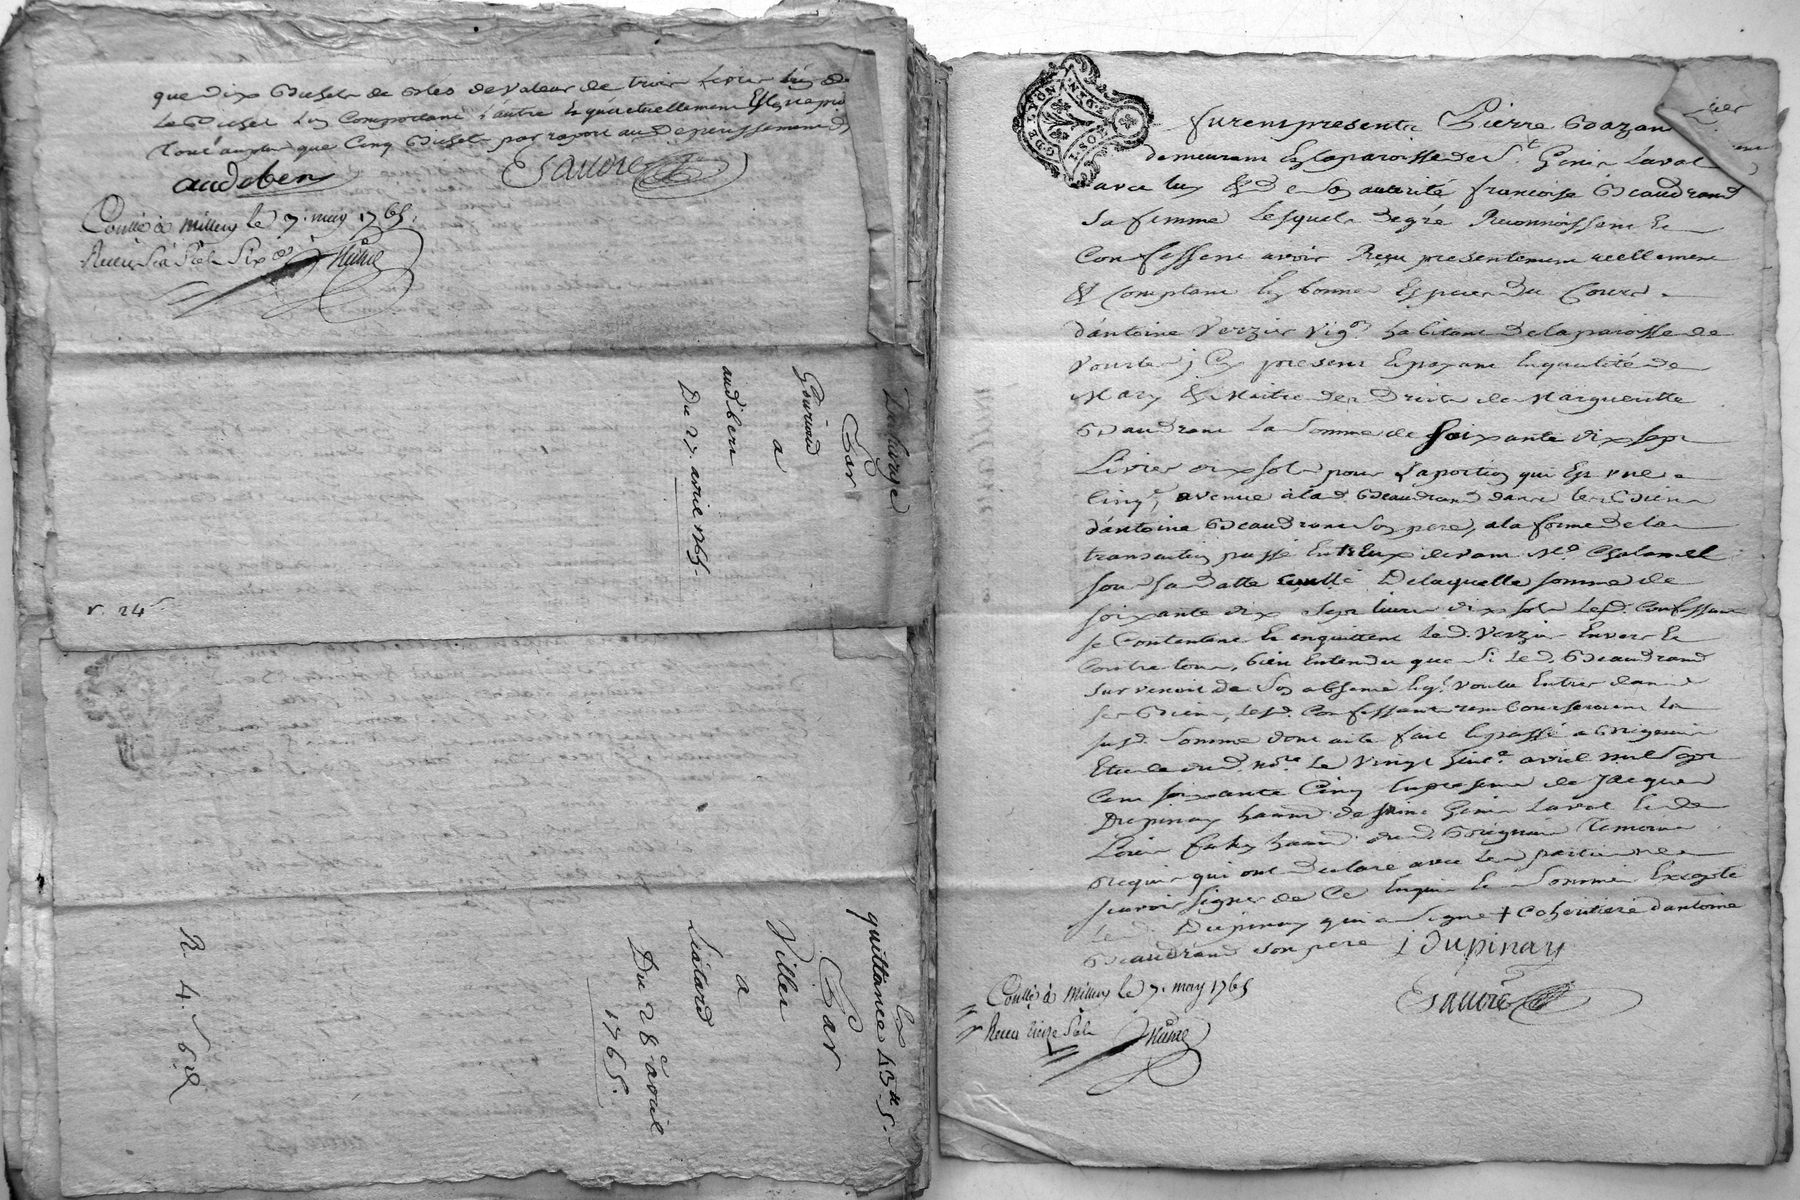 que dix Bichets de Bled de valeur de trois livres
le Bichet
que Cinq Bichets par raport au deperissement
audeben
Esauvre
Collé à Millery le 7. may 1765.
Receu Six Sols Six d.
Décharge
Par
Gounoud
a
audiben
Du 27. avril 1765.
r. 24
quittance
Par
Viller
a
Liatard
Du 28e avril
1765.
R. 4.
G. DE LYON
furent presents Pierre Bazan
demeurant En la paroisse de St. Genis Laval
avec luy & de son autorité francoise Beaudrand
Sa femme Lesquels de gré Reconnoissent Et
Confessent avoir Reçu presentement reellement
& Comptant En bonnes Especes du Cours
d'antoine Verzier Vig.on habitant de la paroisse de
Vourles, Cy present Et payant En qualité de
Mary & Maitre des Droits de Margueritte
Beaudrand La Somme de Soixante dix sept
Livres dix sols pour Sa portion qui Est une
Cinq.e avenue à lad. Beaudrand dans les Biens
d'antoine Beaudrand Son pere, a la forme de la
transaction passé Entr'Eux devant Me. Chalamel
sou sa datte De laquelle somme de
soixante dix Sept livres dix sols Lesd. Confessants
se Contentent Et en quittent Led. Verzier Envers Et
Contre tous, bien Entendu que Si Led. Beaudrand
survenoit de Son absence Et qu'il voulu Entrer dans
ses Biens, Lesd. Confessants rembourseroient La
susd. Somme dont acte fait Et passé a Brignais
Etude dud. no.re Le vingt avril mil Sept
Cent soixante Cinq En presence de Jacques
Dupinay de saint Genis Laval Et de
dud. Brignais Temoins
Requis qui ont declaré avec les parties ne
scavoir signer de Ce Enquis Et Sommés Excepté
Le d. Dupinay qui a Signé + Coheritiere d'antoine
Beaudrand son pere
J Dupinay
Esauvre
Collé à Millery le 7. may 1765
Receu treize Sols